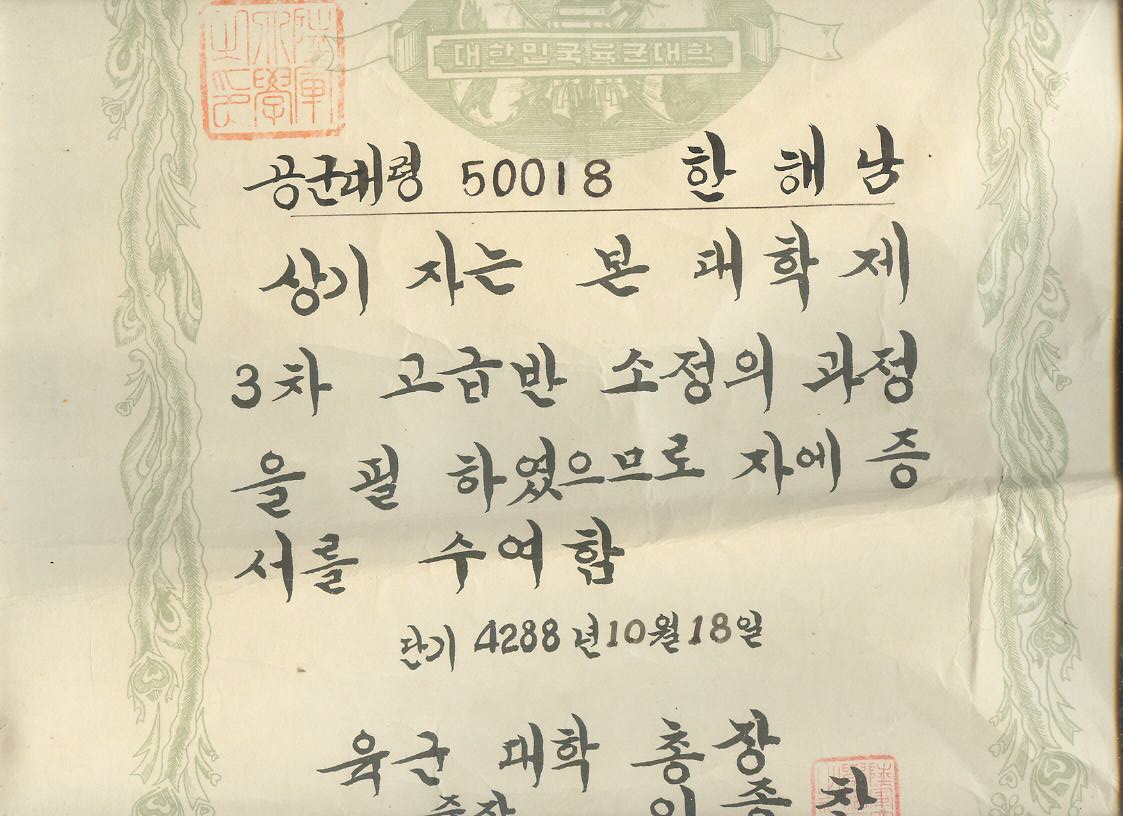 대한민국육군대학
공군대령 50018 한해남
상기 자는 본 대학 제
3차 고급반 소정의 과정
을 필 하였으므로 자에 증
서를 수여함
단기 4288년10월18일
육군 대학 총장
중장 이 종 찬